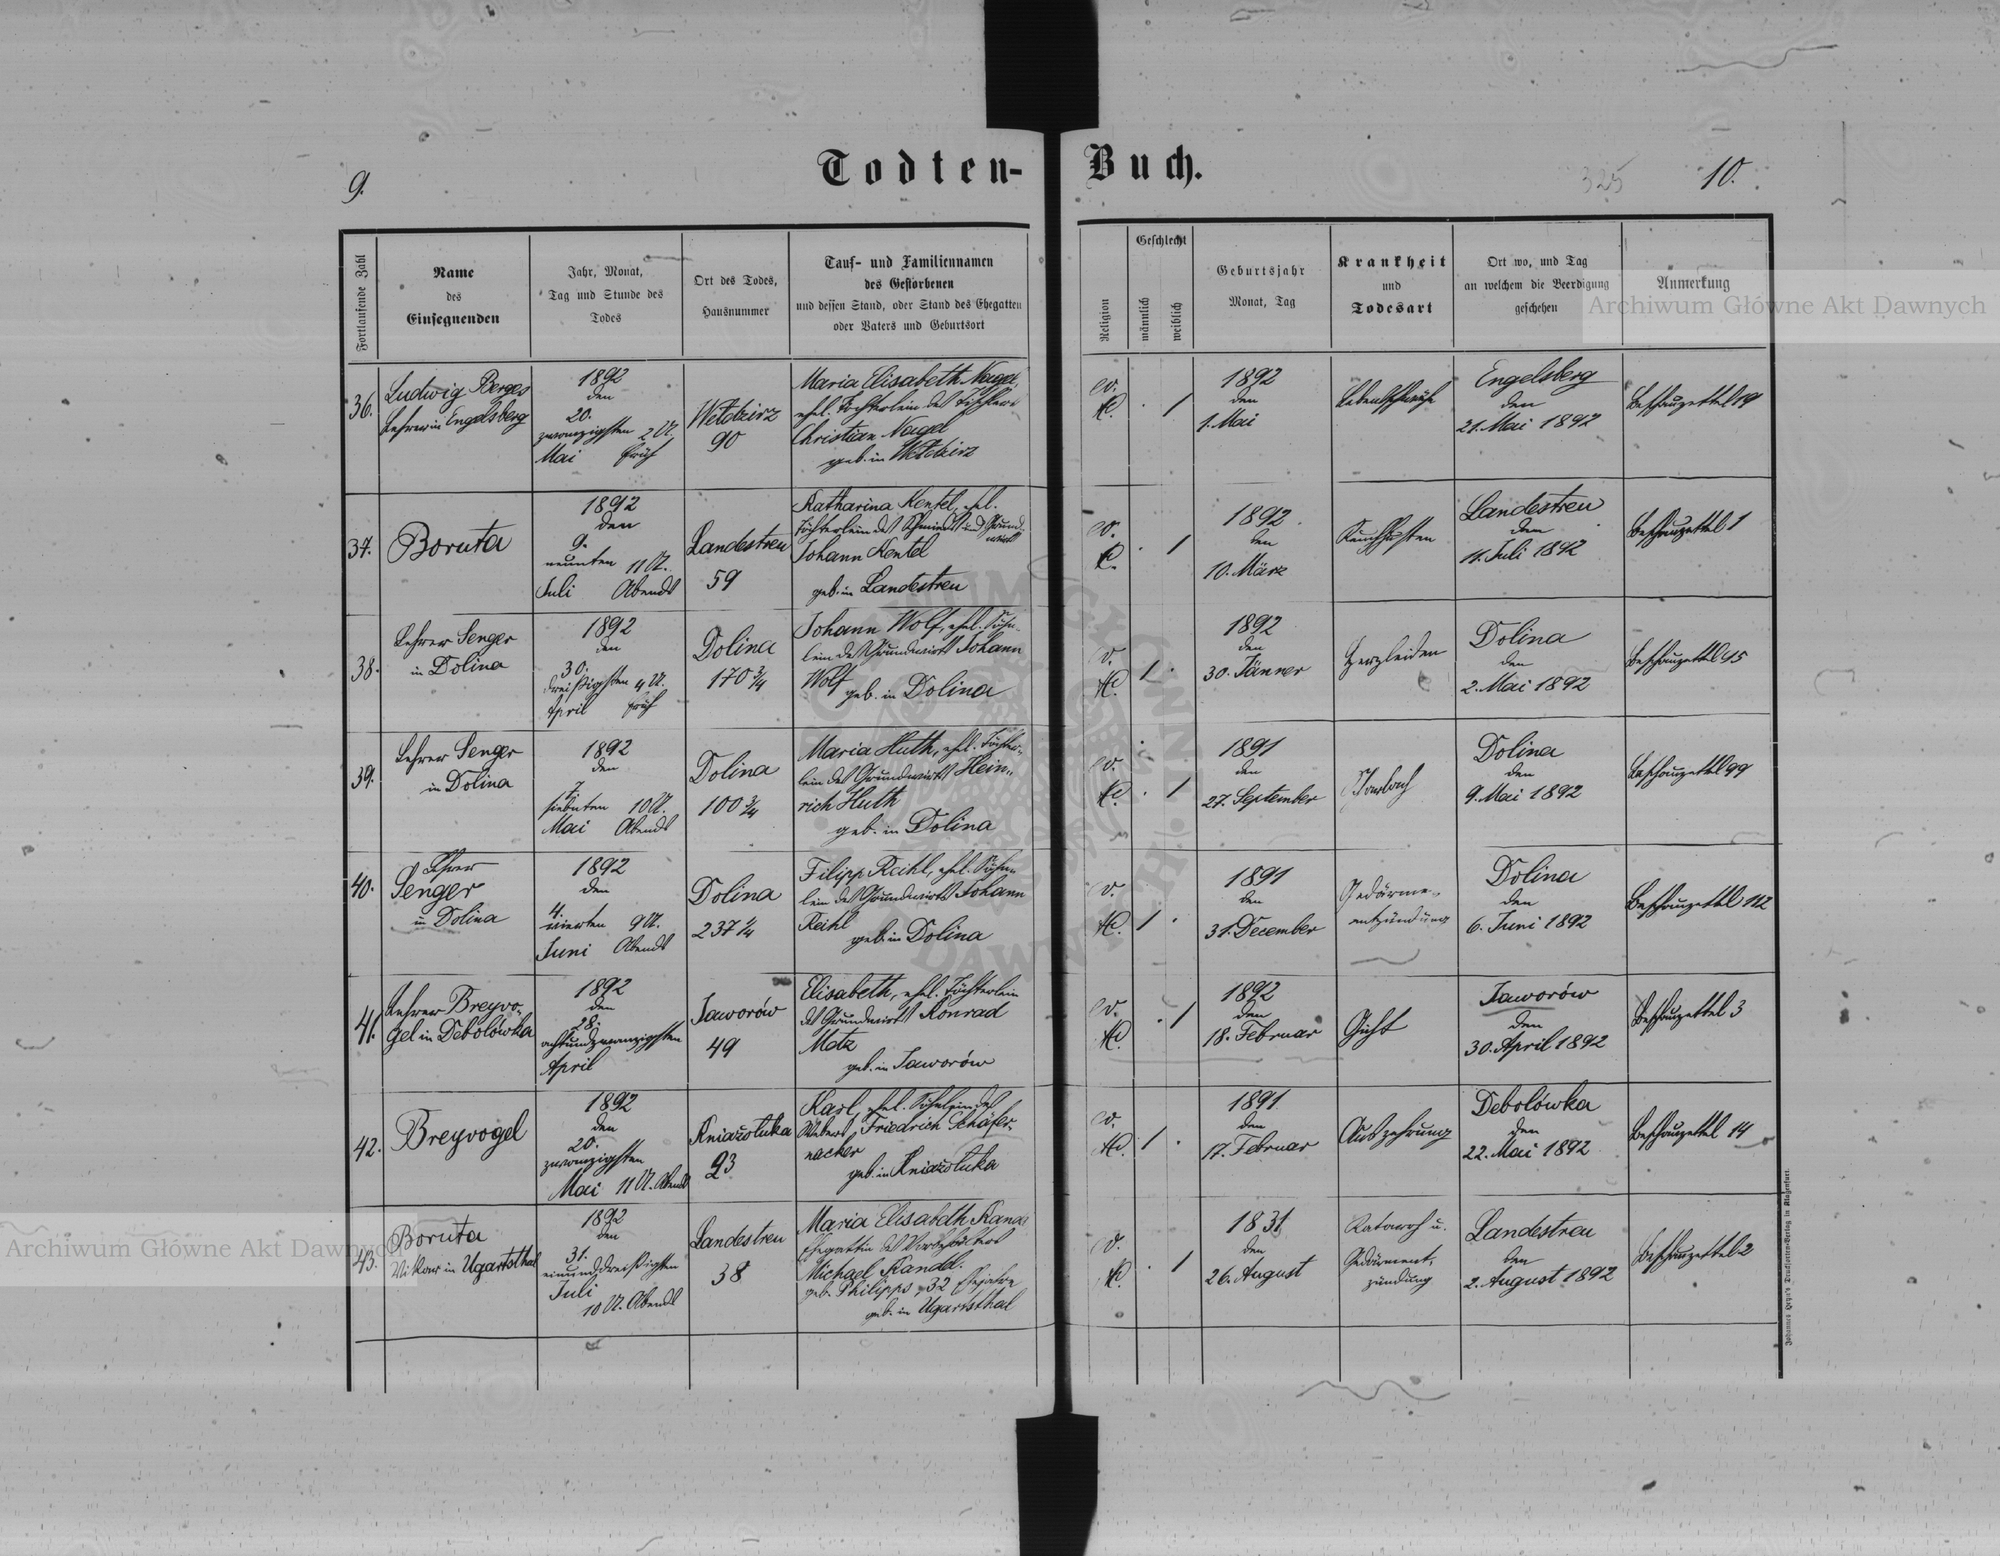 9.
Todten-
Buch.
325
10.
Fortlaufende Zahl
Name
des
Einsegnenden
Jahr, Monat,
Tag und Stunde des
Todes
Ort des Todes,
Hausnummer
Tauf- und Familiennamen
des Gestorbenen
und dessen Stand, oder Stand des Ehegatten
oder Vaters und Geburtsort
Religion
Geschlecht
männlich
weiblich
Geburtsjahr
Monat, Tag
Krankheit
und
Todesart
Ort wo, und Tag
an welchem die Beerdigung
geschehen
Anmerkung
Archiwum Główne Akt Dawnych
36.
Ludwig Berges
Lehrer in Engelsberg
1892
den
20.
zwanzigsten 2 U.
Mai früh
Wełdzirz
90
Maria Elisabeth Nagel,
ehel. Töchterlein des Tischlers
Christian Nagel
geb. in Wełdzirz
ev.
HC.
1
1892
den
1. Mai
Lebensschwäche
Engelsberg
den
21. Mai 1892
Beschauzettel 19
37.
Boruta
1892
den
9.
neunten 11 U.
Juli Abends
Landestreu
59
Katharina Kentel, ehel.
Töchterlein des Schmieds und Grund-
wirts
Johann Kentel
geb. in Landestreu
ev.
HC.
1
1892.
den
10. März
Keuchhusten
Landestreu
den
11. Juli 1892
Beschauzettel 1
38.
Lehrer Senger
in Dolina
1892
den
30.
dreißigsten 4 U.
April früh
Dolina
170 3/4
Johann Wolf, ehel. Söhn-
lein des Grundwirts Johann
Wolf
geb. in Dolina
ev.
HC.
1
1892
den
30. Jänner
Herzleiden
Dolina
den
2. Mai 1892
Beschauzettel 95
39.
Lehrer Senger
in Dolina
1892
den
7.
siebnten 10 U.
Mai Abends
Dolina
100 3/4
Maria Huth, ehel. Töchter-
lein des Grundwirts Hein-
rich Huth
geb. in Dolina
ev.
HC.
1
1891
den
27. September
Dolina
den
9. Mai 1892
Beschauzettel 99
40.
Lehrer
Senger
in Dolina
1892
den
4.
vierten 9 U.
Juni Abends
Dolina
237 1/4
Filipp Reihl, ehel. Söhn-
lein des Grundwirts Johann
Reihl
geb. in Dolina
ev.
HC.
1
1891
den
31. December
Gedärme-
entzündung
Dolina
den
6. Juni 1892
Beschauzettel 112
41.
Lehrer Breyvo-
gel in Debolówka
1892
den
28.
achtundzwanzigsten
April
Jaworów
49
Elisabeth, ehel. Töchterlein
des Grundwirts Konrad
Motz
geb. in Jaworów
ev.
HC.
1
1892
den
18. Februar
Gicht
Jaworów
den
30. April 1892
Beschauzettel 3
42.
Breyvogel
1892
den
20.
zwanzigsten
Mai 11 U. Abends
Kniazołuka
93
Karl, ehel. Söhnlein des
Webers Friedrich Schäfer-
nacker
geb. in Kniazołuka
ev.
HC.
1
1891
den
17. Februar
Auszehrung
Debolówka
den
22. Mai 1892
Beschauzettel 14
43.
Boruta
Vikar in Ugartsthal
1892
den
31.
einunddreißigsten
Juli
10 U. Abends
Landestreu
38
Maria Elisabeth
Ehegattin des
Michael Kandl.
geb. Philipps 32 Ehejahre
geb. in Ugartsthal
ev.
HC.
1
1831
den
26. August
Katarrh u.
Gedärment-
zündung
Landestreu
den
2. August 1892
Beschauzettel 2
Archiwum Główne Akt Dawnych
Johannes Heyn's Drucksorten-Verlag in Klagenfurt.